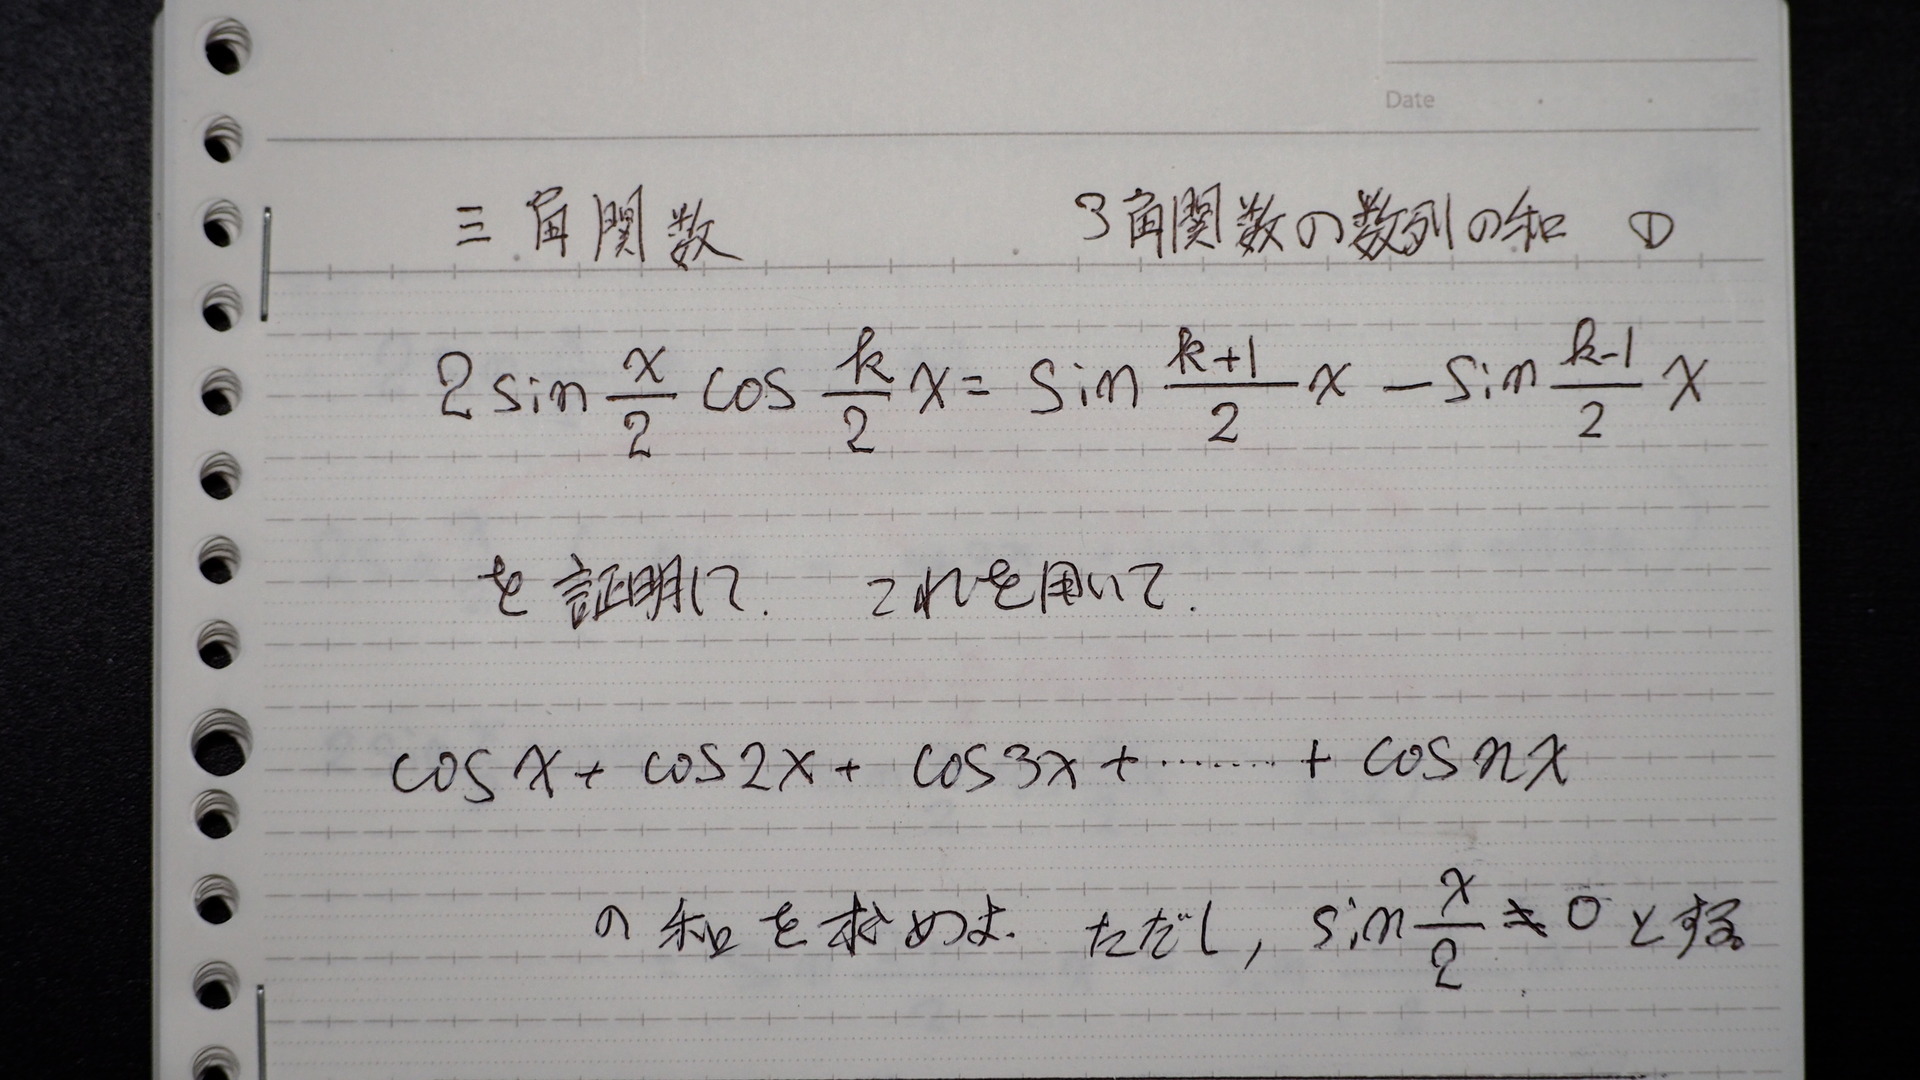 Date
三角関数 3角関数の数列の和 ①
2 sin x/2 cos k/2 x = sin k+1/2 x − sin k-1/2 x
を証明して. これを用いて.
cos x + cos 2x + cos 3x + ······· + cos nx
の和を求めよ. ただし, sin x/2 ≠ 0 とする。